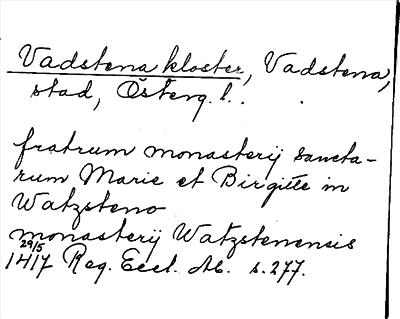 Vadstena kloster, Vadstena,
stad, Österg. l.
fratrum monasterij sancta-
rum Marie et Birgitte in
Watzsteno
monasterij Watzstenensis
29/5
1417 Reg. Eccl. s. 277.